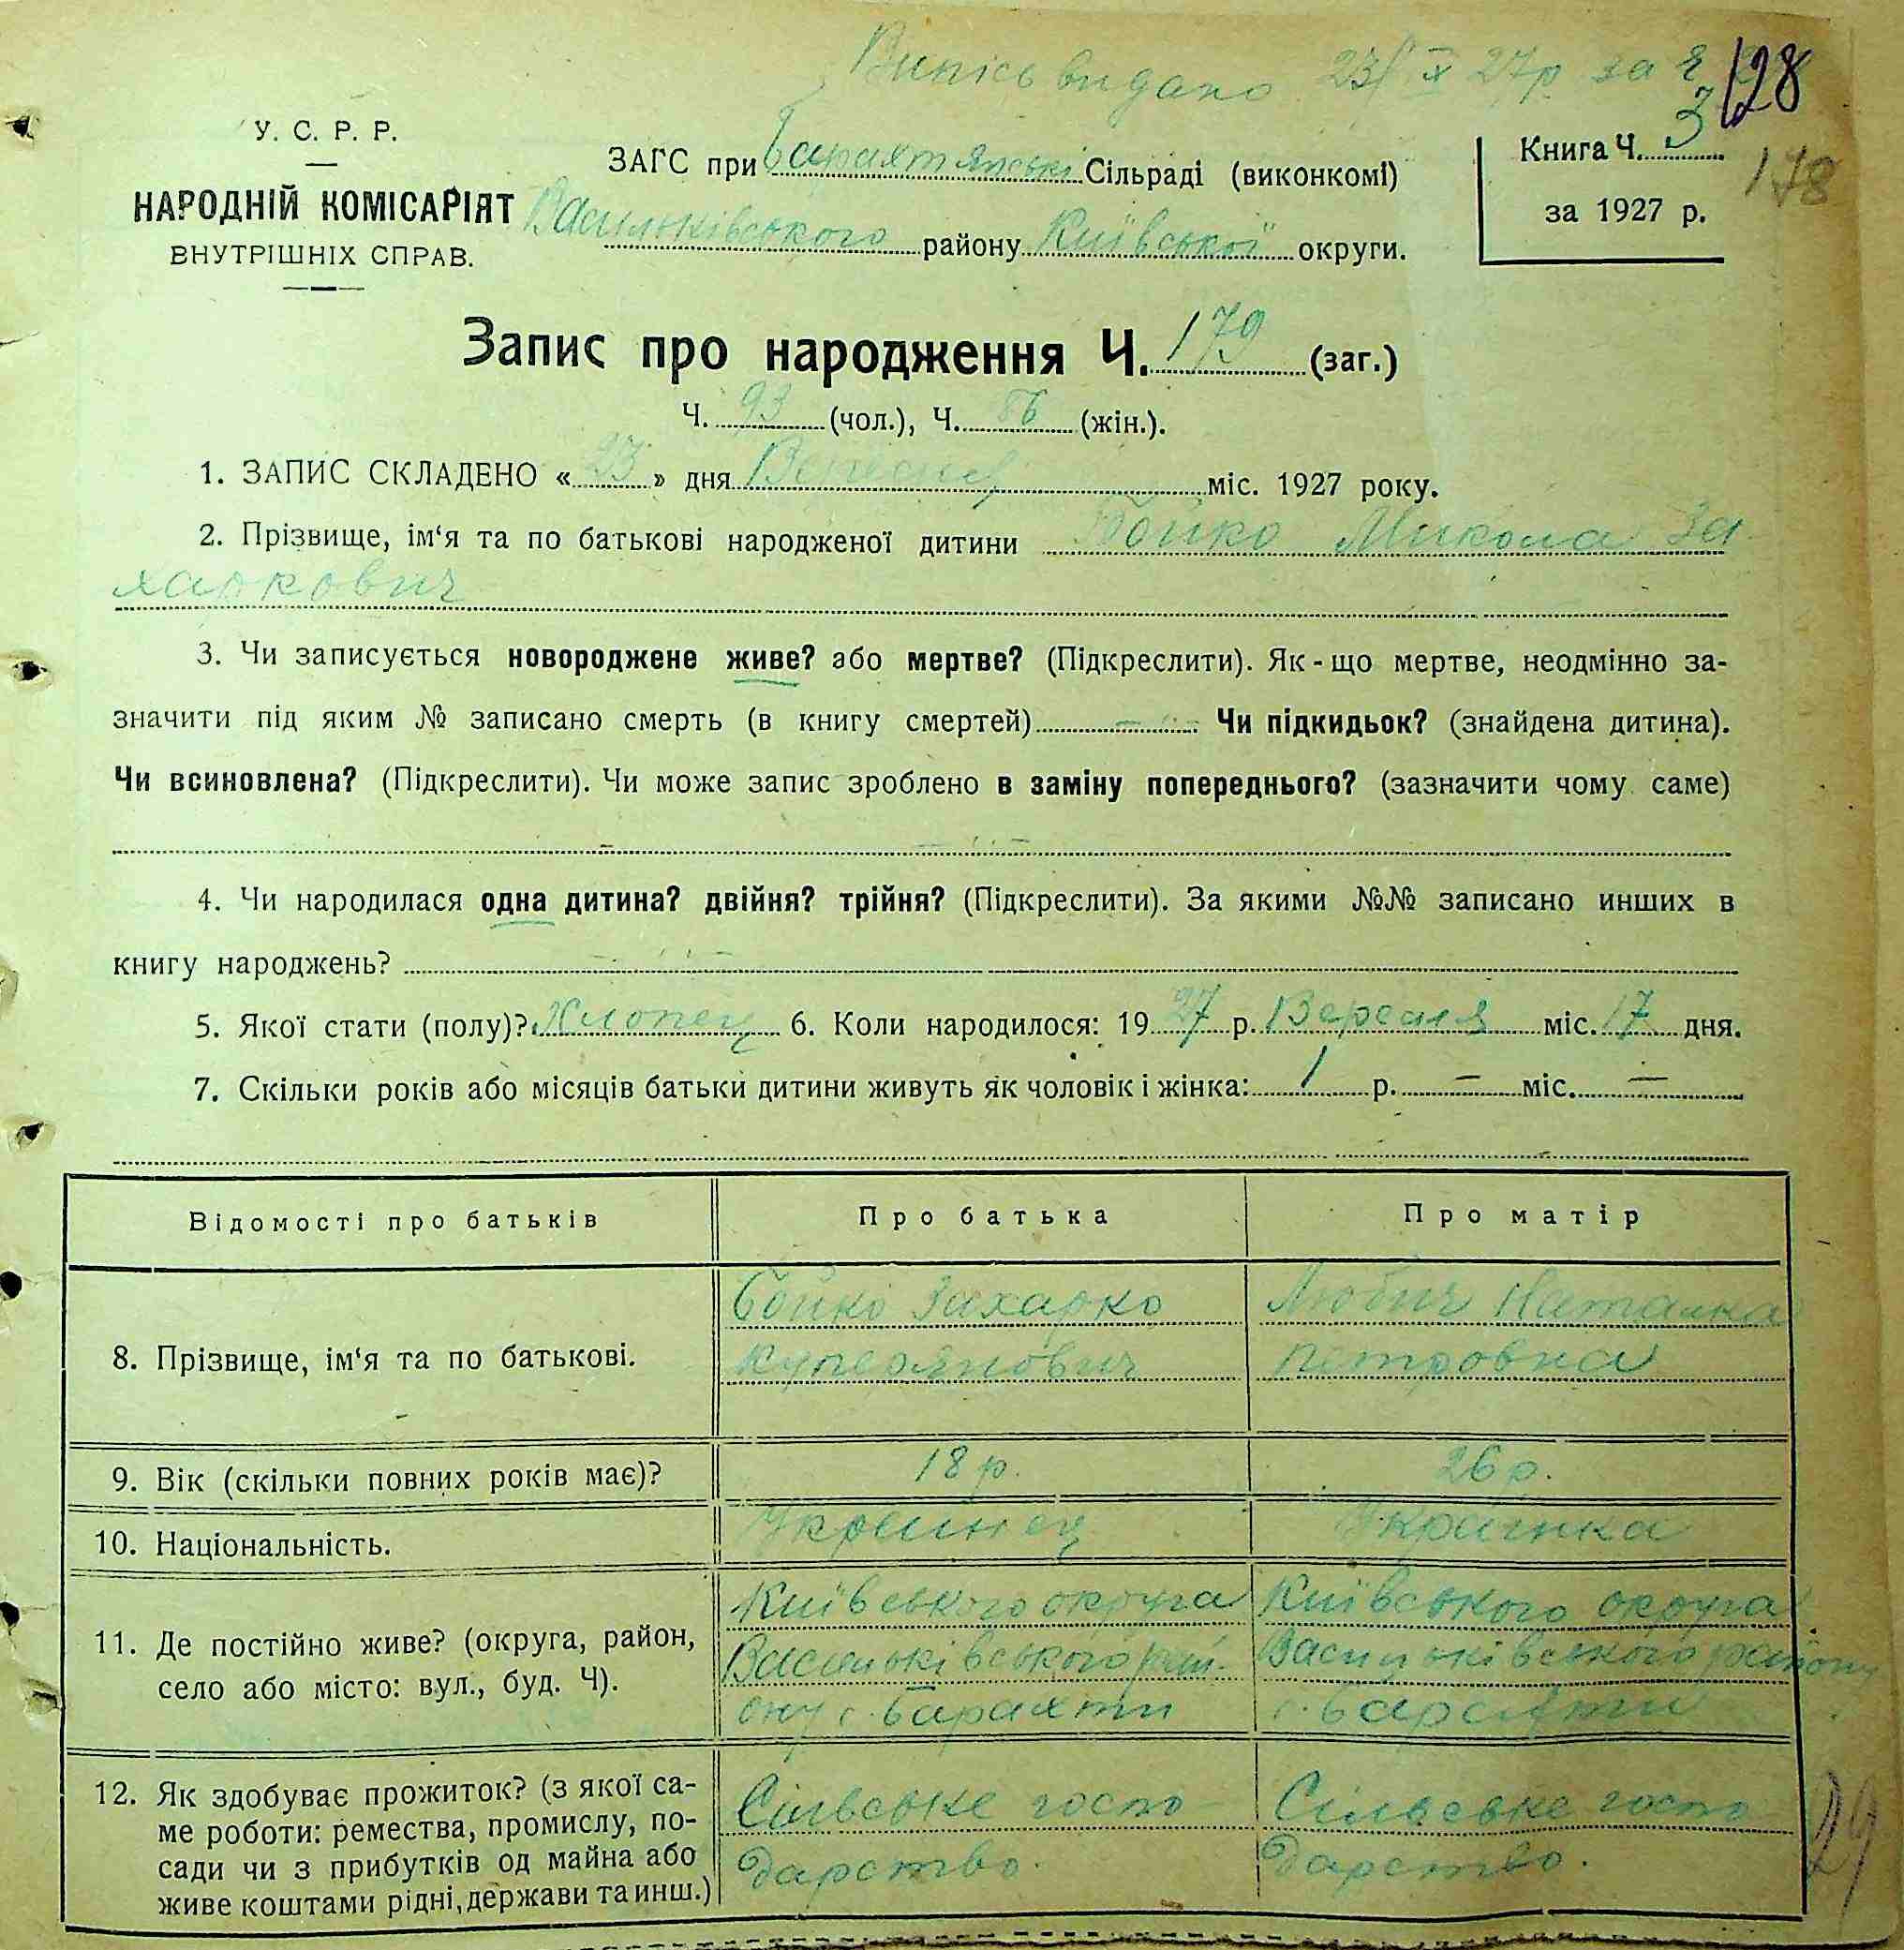 Випісь видано 23/ІХ 27р. за Ч
128
178
У. С. Р. Р.
НАРОДНІЙ КОМІСАРІЯТ
ВНУТРІШНІХ СПРАВ.
ЗАГС при Барахтянські Сільраді (виконкомі)
Васильківського району Київської округи.
Книга Ч. 3
за 1927 р.
Запис про народження Ч. 179 (заг.)
Ч. 93 (чол.), Ч. 86 (жін.).
1. ЗАПИС СКЛАДЕНО « 23 » дня Вересня міс. 1927 року.
2. Прізвище, ім‘я та по батькові народженої дитини Бойко Микола За
харкович
3. Чи записується новороджене живе? або мертве? (Підкреслити). Як-що мертве, неодмінно за-
значити під яким № записано смерть (в книгу смертей) — Чи підкидьок? (знайдена дитина).
Чи всиновлена? (Підкреслити). Чи може запис зроблено в заміну попереднього? (зазначити чому саме)
4. Чи народилася одна дитина? двійня? трійня? (Підкреслити). За якими №№ записано инших в
книгу народжень?
5. Якої стати (полу)? Хлопец 6. Коли народилося: 19 27 р. Вересня міс. 17 дня.
7. Скільки років або місяців батьки дитини живуть як чоловік і жінка: 1 р. — міс. —
Відомості про батьків Про батька Про матір
8. Прізвище, ім‘я та по батькові.
Бойко Захарко
Куперянович
Любич Наталка
Петровна
9. Вік (скільки повних років має)? 18 р. 26 р.
10. Національність. Украинец Украінка
11. Де постійно живе? (округа, район,
село або місто: вул., буд. Ч).
Київського округа
Васильківського рай-
ону с. Барахти
Київського округа
Васильківського району
с. Барахти
12. Як здобуває прожиток? (з якої са-
ме роботи: ремества, промислу, по-
сади чи з прибутків од майна або
живе коштами рідні, держави та инш.)
Сільське госпо
дарство.
Сільське госпо
дарство.
29